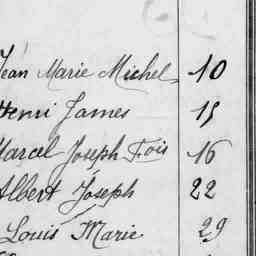 Jean Marie Michel 10
Henri James 15
Marcel Joseph Fois 16
Albert Joseph 22
Louis Marie 29